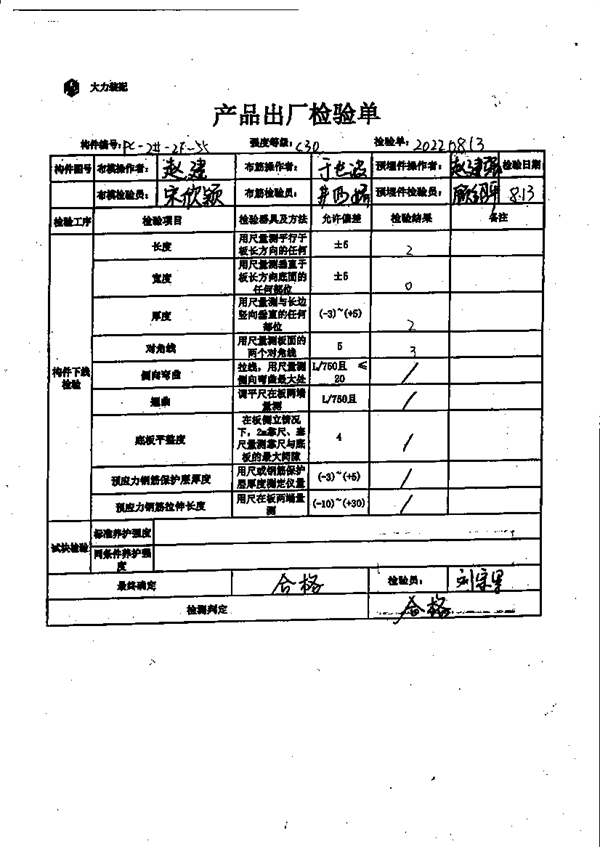 大力装配
产品出厂检验单
构件编号: PC-2#-2F-55 强度等级: C30 检验单: 20220813
构件图号 布模操作者: 赵建 布筋操作者: 预埋件操作者: 赵建强 检验日期
布模检验员: 宋欣颖 布筋检验员: 预埋件检验员: 8.13
检验工序 检验项目 检验器具及方法 允许偏差 检验结果 备注
构件下线检验
长度 用尺量测平行于板长方向的任何 ±5 2
宽度 用尺量测垂直于板长方向底面的任何部位 ±5 0
厚度 用尺量测与长边竖向垂直的任何部位 (-3)~(+5) 2
对角线 用尺量测板面的两个对角线 5 3
侧向弯曲 拉线,用尺量测侧向弯曲最大处 L/750且 ≤20 /
翘曲 调平尺在板两端量测 L/750且 /
底板平整度 在板侧立情况下,2m靠尺、塞尺量测靠尺与底板的最大间隙 4 /
预应力钢筋保护层厚度 用尺或钢筋保护层厚度测定仪量 (-3)~(+5) /
预应力钢筋拉伸长度 用尺在板两端量测 (-10)~(+30) /
试块检验 标准养护强度
同条件养护强度
最终确定 合格 检验员:
检测判定 合格